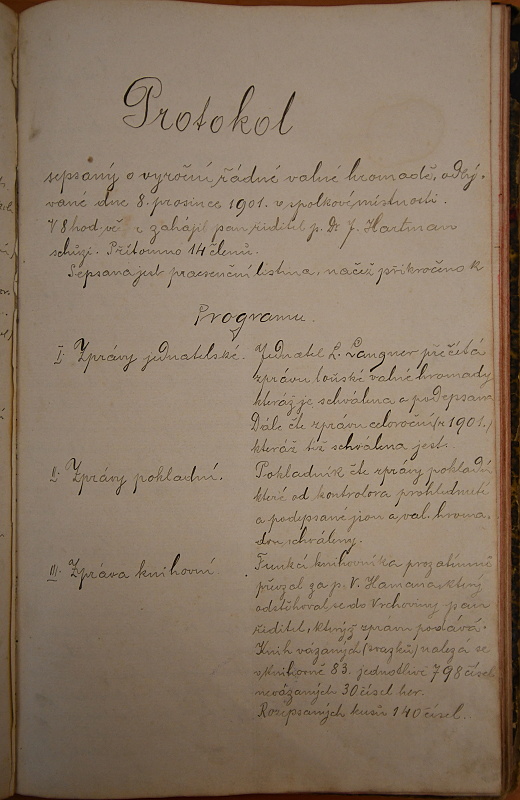 Protokol
sepsaný o výroční řádné valné hromadě, odbý-
vané dne 8. prosince 1901. v spolkové místnosti.
V 8 hod. več zahájil pan ředitel p. Dr J. Hartman
schůzi. Přítomno 14 členů.
Sepsána jest praesenční listina, načež přikročeno k
Programu.
I. Zprávy jednatelské. Jednatel L. Langner přečítá
zprávu loňské valné hromady
kteráž je schválena a podepsána
Dále čte zprávu celoroční (r 1901.)
kteráž též schválena jest.
II. Zprávy pokladní. Pokladník čte zprávy pokladní
které od kontrolora prohlednuti
a podepsané jsou a val. hroma-
dou schváleny.
III. Zpráva knihovní Funkci knihovníka prozatímně
převzal za p. V. Hamana, který
odstěhoval se do Vrchoviny pan
ředitel, kterýž zprávu podává.
Knih vázaných (svazků) nalezá se
v knihovně 83. jednotlivě 798 čísel
nevázaných 30 čísel her.
Rozepsaných kusů 140 čísel.